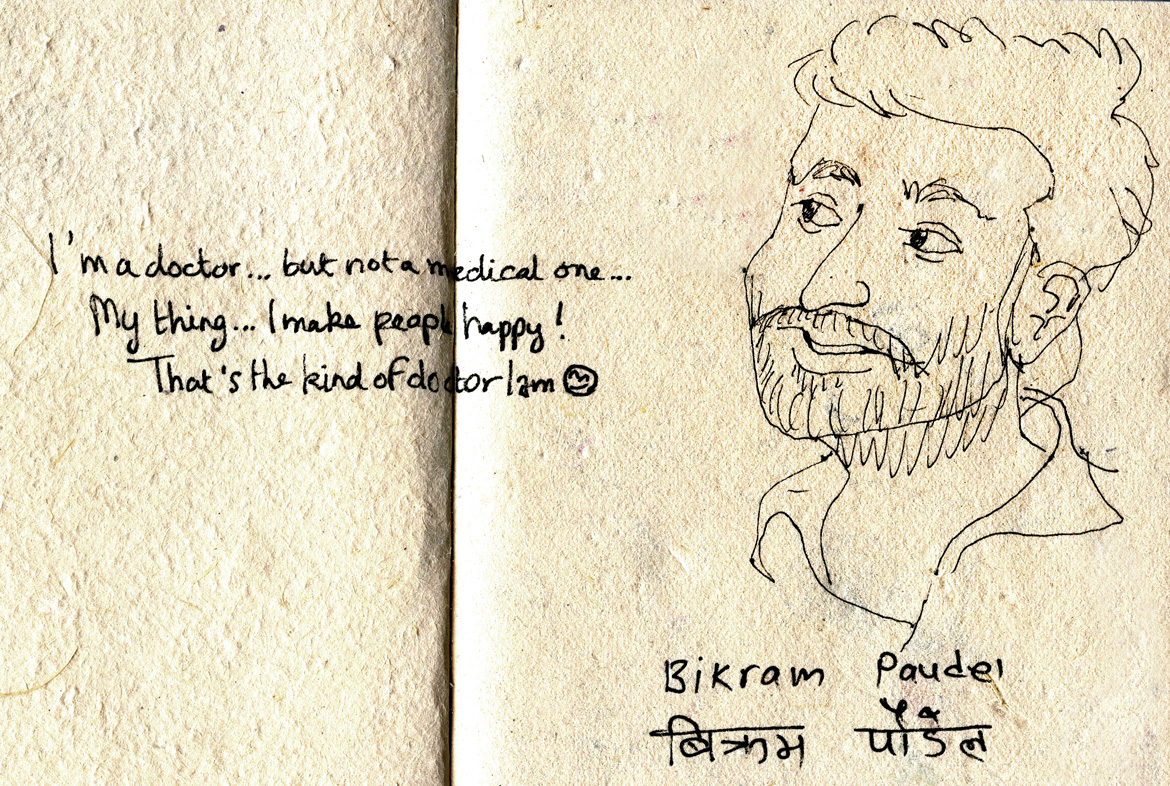 I'm a doctor... but not a medical one...
My thing... I make peapl happy!
That's the kind of doctor I am ☺
Bikram Paudel
बिक्रम पौडेल